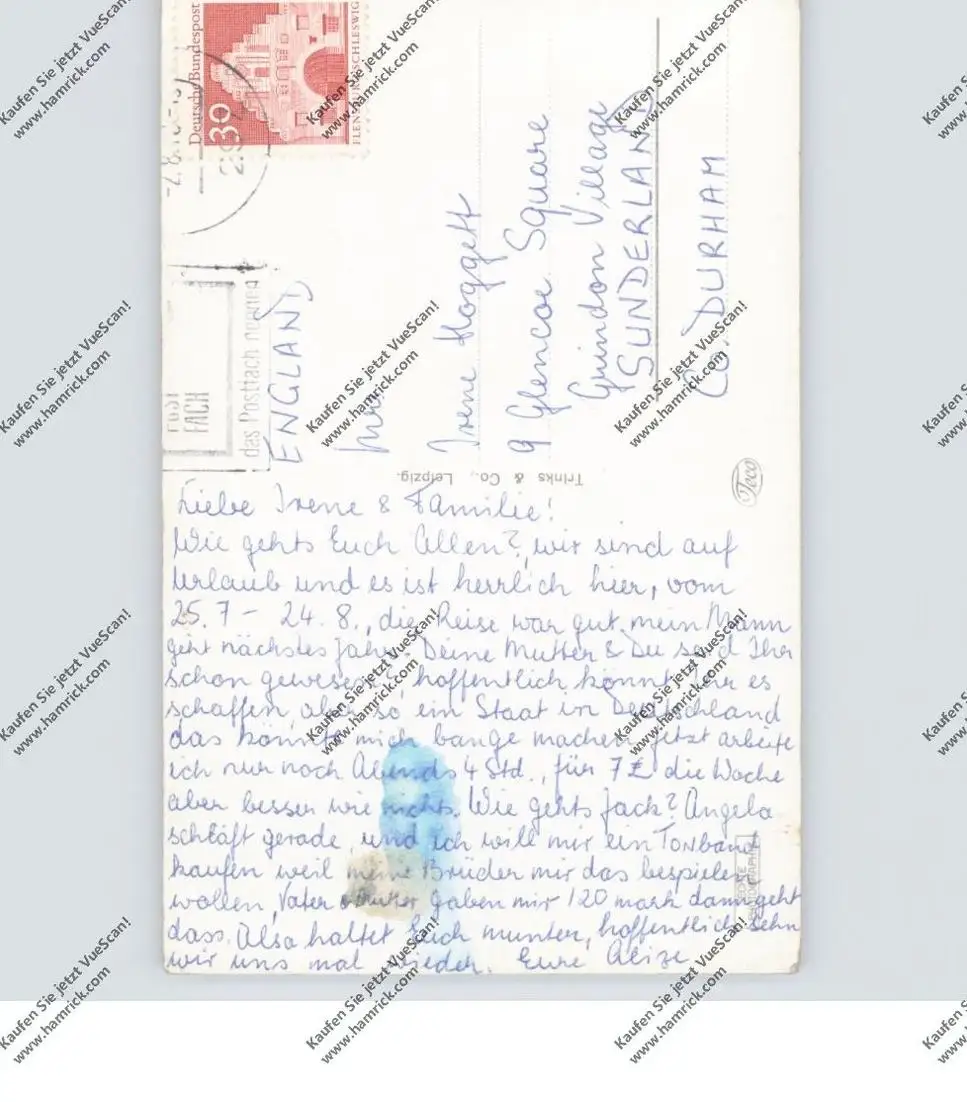 Deutsche Bundespost
30
FLENSBURG/SCHLESWIG
-2.8.
POST
FACH
das Postfach nennen
ENGLAND
Irene Hoggett
9 Glencoe Square
Grindon Village
SUNDERLAND
CO. DURHAM
Trinks & Co., Leipzig.
Teco
Liebe Irene & Familie!
Wie gehts Euch Allen? wir sind auf
Urlaub und es ist herrlich hier, vom
25.7 – 24.8., die Reise war gut, mein Mann
geht nächstes Jahr. Deine Mutter & Du seid Ihr
schon gewesen?, hoffentlich könnt Ihr es
schaffen, aber so ein Staat in Deutschland
das könnte mich bange machen, jetzt arbeite
ich nur noch Abends 4 Std., für 7£ die Woche
aber besser wie nichts. Wie gehts Jack? Angela
schläft gerade, und ich will mir ein Tonband
kaufen weil meine Brüder mir das bespielen
wollen, Vater & Mutter gaben mir 120 mark dann geht
dass. Also haltet Euch munter, hoffentlich sehn
wir uns mal wieder. Eure
Kaufen Sie jetzt VueScan!
www.hamrick.com